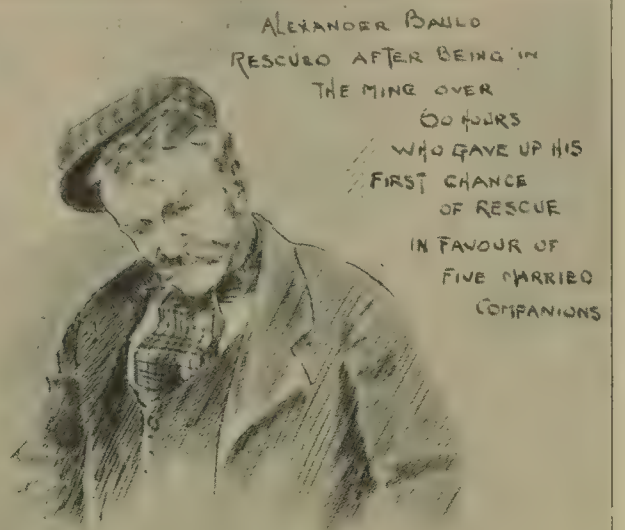 ALEXANDER BAULD
RESCUED AFTER BEING IN
THE MINE OVER
60 HOURS
WHO GAVE UP HIS
FIRST CHANCE
OF RESCUE
IN FAVOUR OF
FIVE MARRIED
COMPANIONS